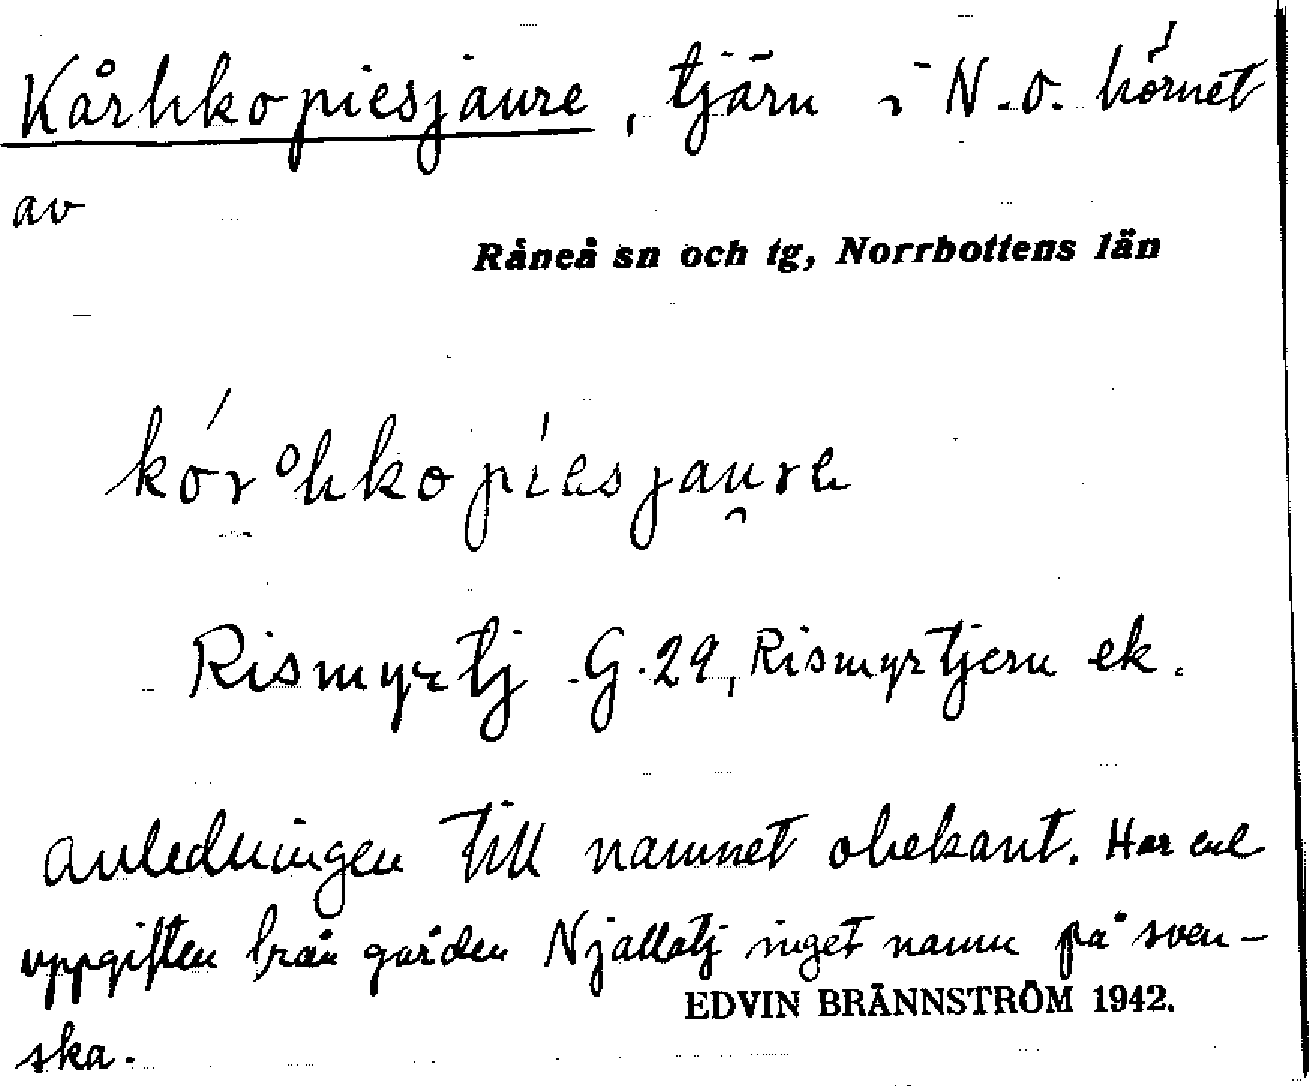 Kårhkopiesjaure, tjärn i N.O. hörnet
av
Råneå sn och tg, Norrbottens län
kór°hkopíesjau̯re
Rismyrtj G.29, Rismyrtjern ek.
anledningen till namnet obekant. Har enl
uppgiften från gården Njallatj inget namn på sven-
EDVIN BRÄNNSTRÖM 1942.
ska.